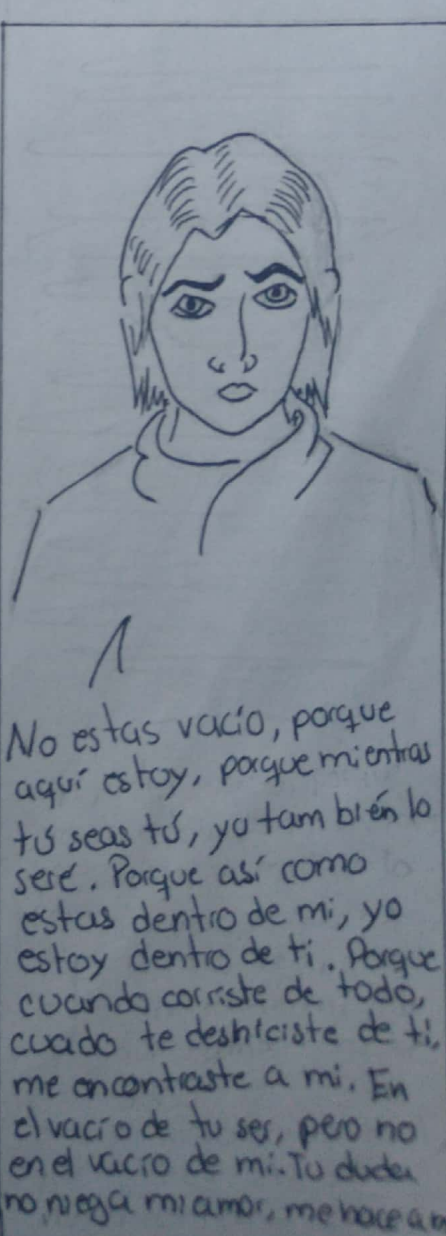 No estas vacío, porque
aquí estoy, porque mientras
tú seas tú, yo también lo
seré. Porque así como
estas dentro de mi, yo
estoy dentro de ti. Porque
cuando corriste de todo,
cuado te deshiciste de ti,
me encontraste a mi. En
el vacío de tu ser, pero no
en el vacío de mi. Tu duda
no niega mi amor, me hace